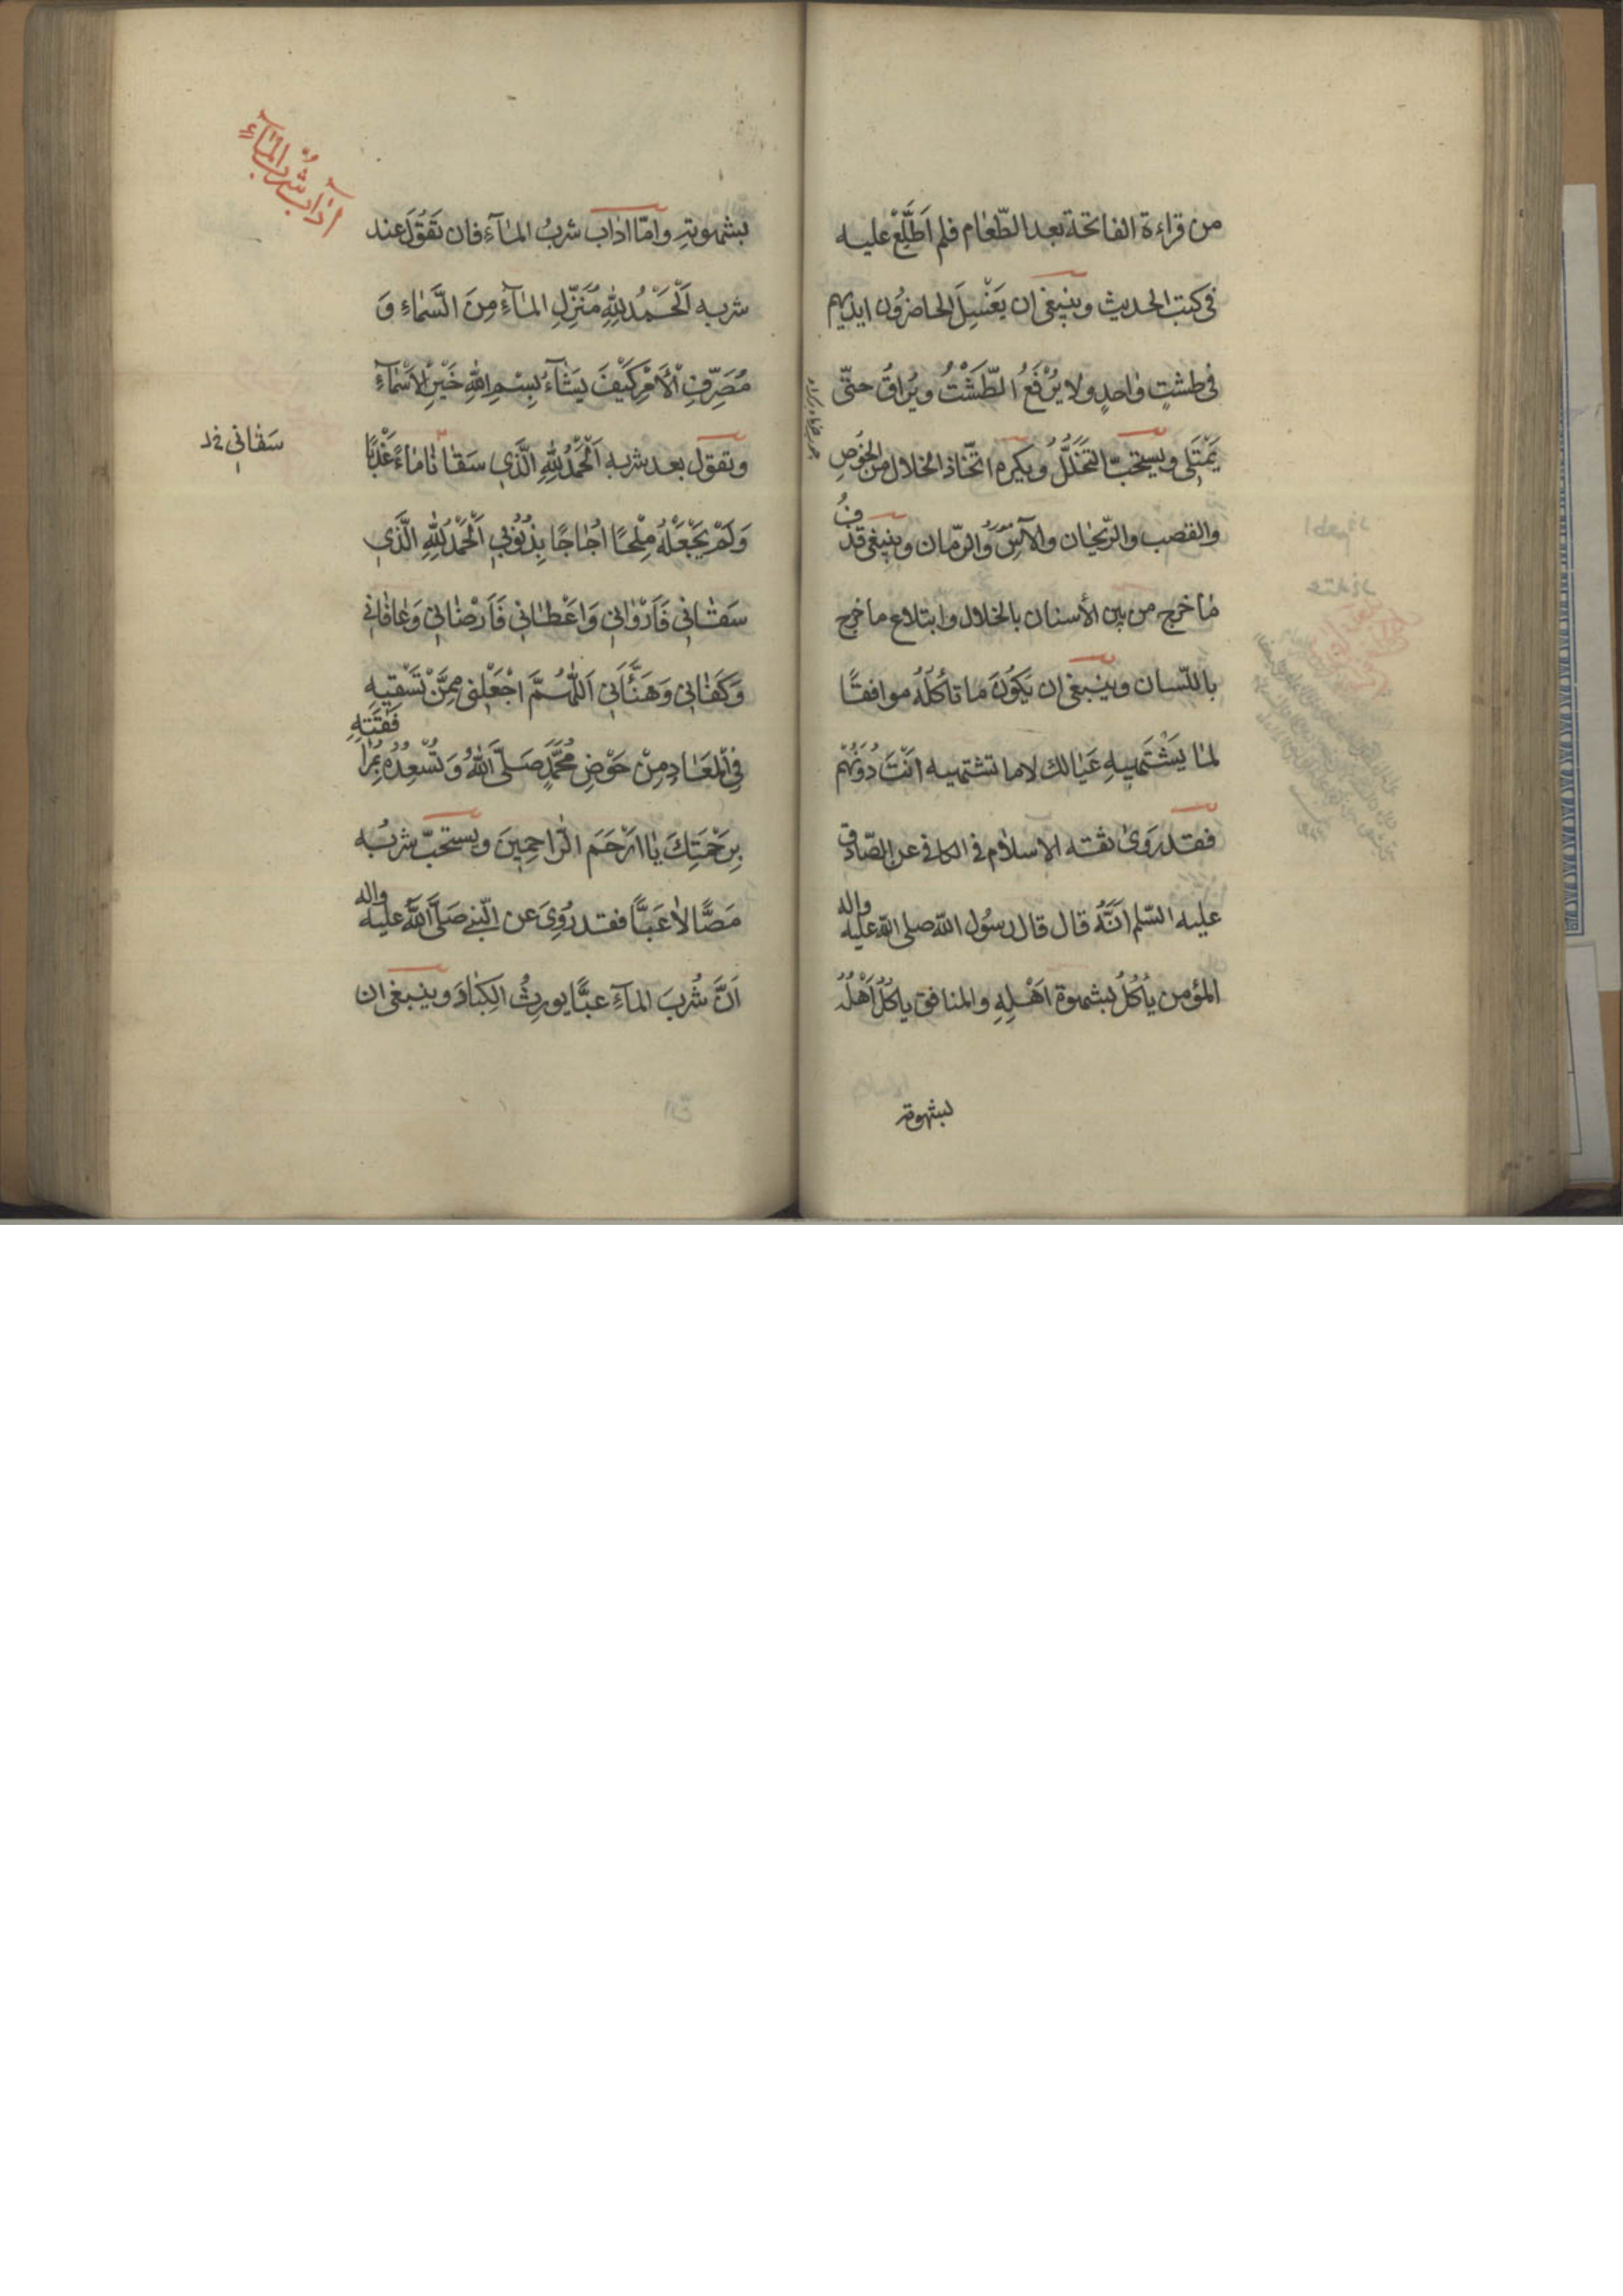 من قراءة الفاتحة بعد الطّعام فلم اَطَّلِعْ عليه
فى كتب الحديث وينبغى ان يَغْسِلَ الحاضرُون ايديهم
فى طشتٍ واحدٍ ولا يُرْفَعُ الطّشْتُ ويُراقُ حتّى
يَمْتَلِى ويستحبّ التخَلّلُ ويكره اتّخاذ الخلال من الخُوصِ
والقصب والرّيحان والآسِ وَالرّمان وينبغى قذفُ
ما خرج من بين الأسنان بالخلال وابتلاع ما خرج
باللّسان وينبغى ان يَكوُنَ ما تأكلُهُ موافقًا
لما يَشْتَهيهِ عَيالك لا ما تشتهيه اَنْتَ دُونَهُمْ
فقد رَوىٰ ثقته الاسلام فى الكافى عن الصّادق
عليه السّلم اَنَّهُ قال قال رسُول اللّه صلى اللّه عليه واله
المؤمن يأكُلُ بشهوة اَهْلِهِ والمنافق ياكُلُ اَهْلُهُ
بشهوته
آدابُ شُربِ المآءِ
بشهوتِهِ وامّا اداب شربُ المآءِ فان تَقوُلَ عند
شربه اَلْحَمْدُ لِلّهِ مُنَزِّلِ المآءِ مِنَ السَّماءِ وَ
مُصَرِّفِ الْأَمْرِ كَيْفَ يَشآءُ بِسْمِ اللهِ خَيْرِ الْاَسْمآءِ
وتقول بعد شربه اَلْحَمْدُ لِلّهِ الَّذي سَقانا ماءً عَذْبًا
سَقاني خ د
وَلَمْ يَجْعَلْهُ مِلْحًا اُجاجًا بِذُنُوبي اَلْحَمْدُ لِلّهِ الَّذي
سَقاني فَاَرْواني وَاَعْطاني فَاَرْضاني وَعافاني
وَكَفاني وَهَنَّاَني اَللّهُمَّ اجْعَلْني مِمَّنْ تَسْقيهِ
فِى الْمَعادِ مِنْ حَوْضِ مُحَمَّدٍ صَلَّى اللهُ وَتُسْعِدُهُ بِمُرافَقَتِهِ
بِرَحْمَتِكَ يا اَرْحَمَ الرّاحِمِينَ ويستحبّ شربُه
مَصًّا لا عَبًّا فقد رُوِىَ عن النّبى صَلَّى اللهُ عليه واله
اَنَّ شُربَ المآءِ عبًّا يورِثُ الكِبادَ وينبغى ان